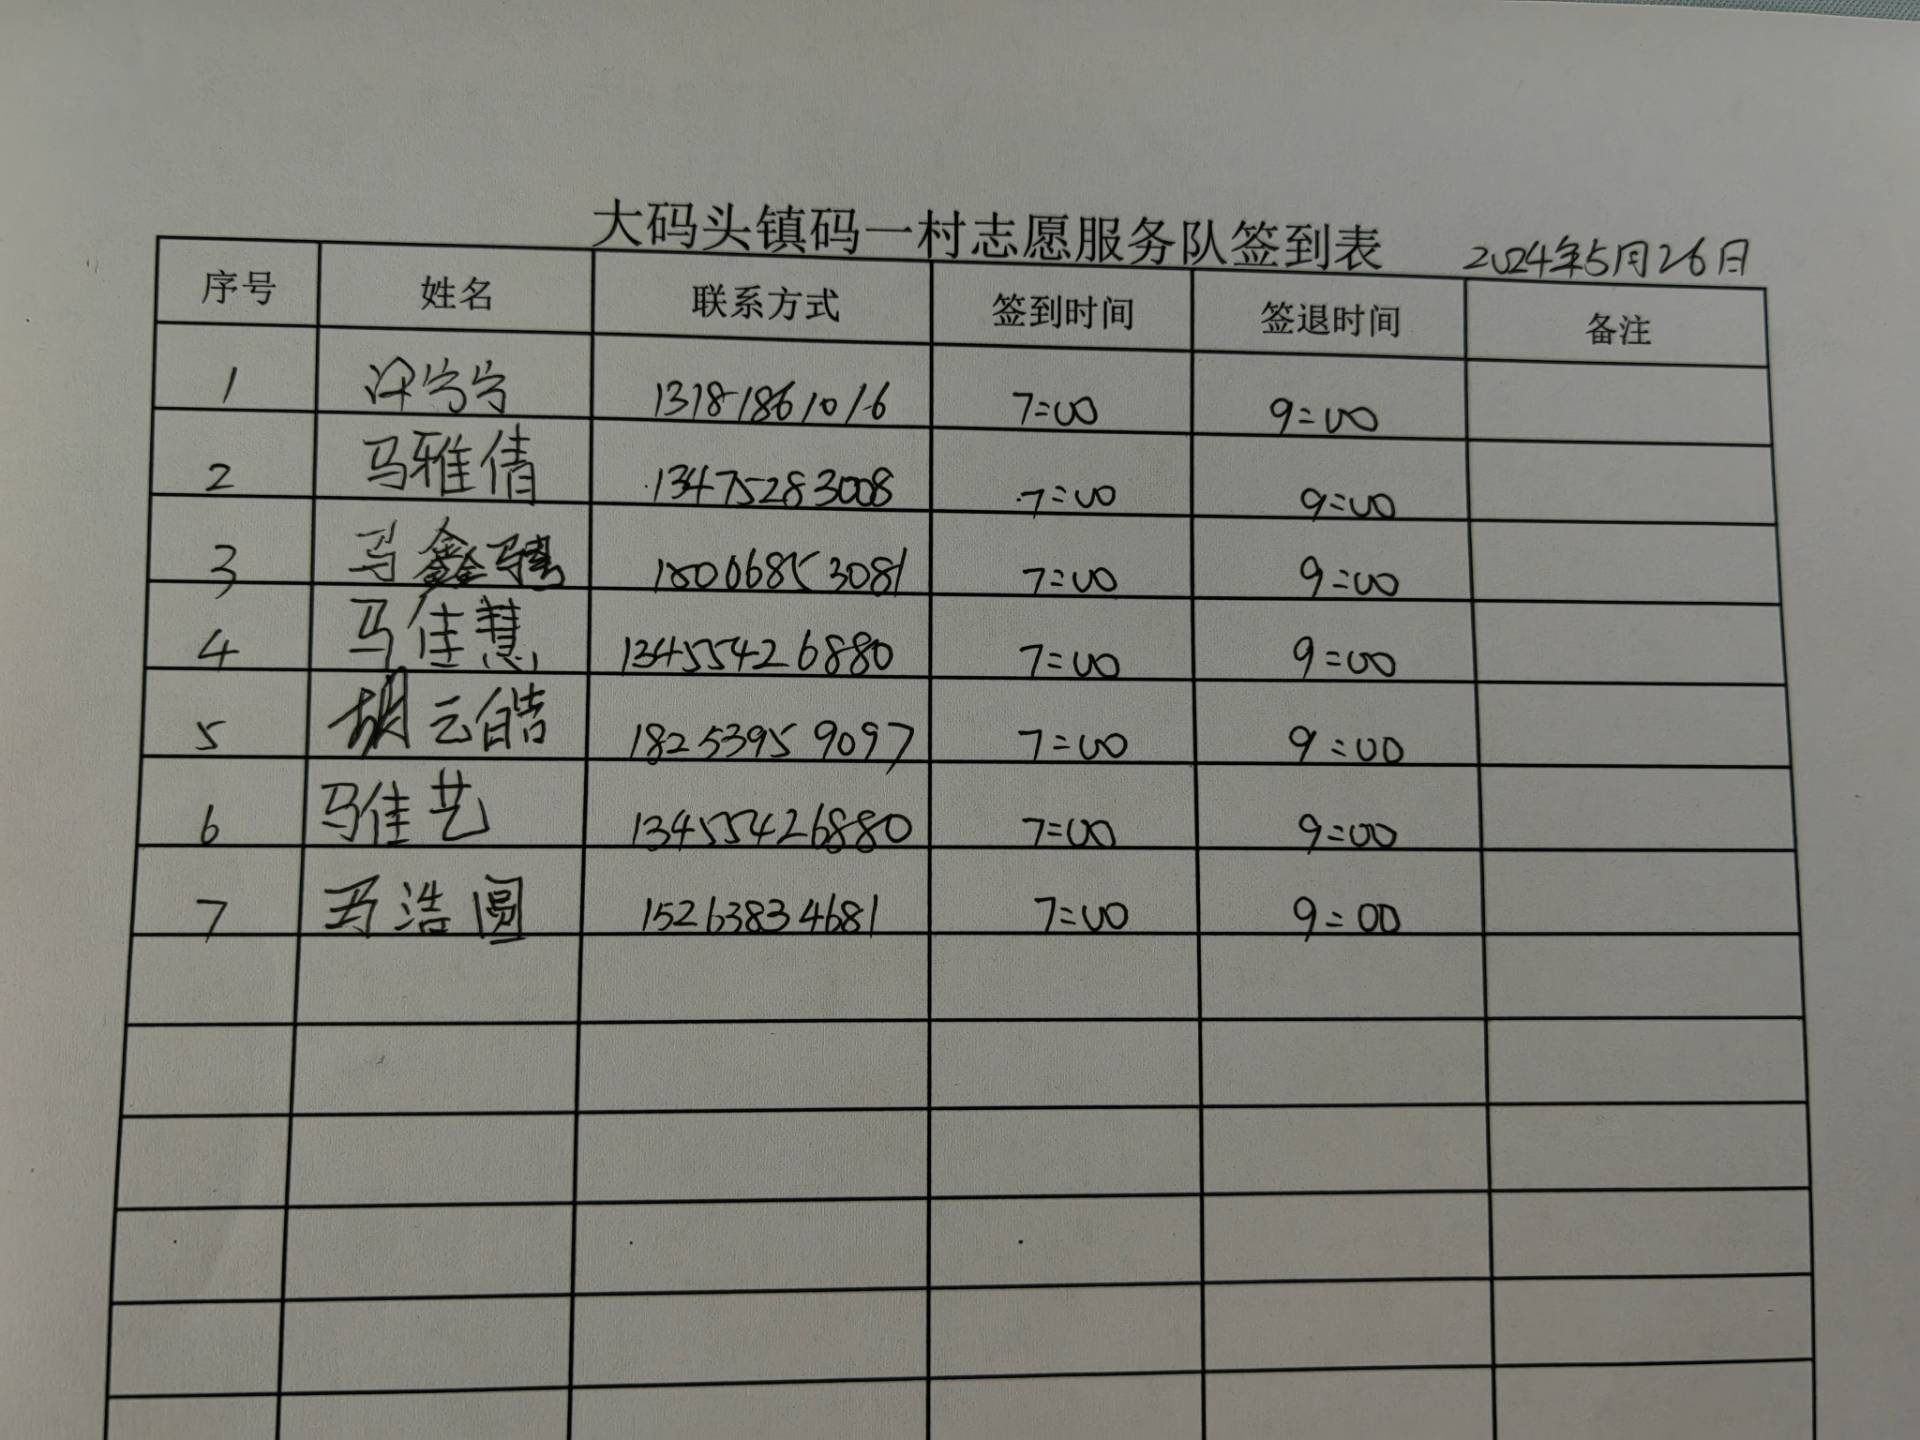 大码头镇码一村志愿服务队签到表 2024年5月26日
序号 姓名 联系方式 签到时间 签退时间 备注
1 13181861016 7:00 9:00
2 马雅倩 13475283008 7:00 9:00
3 马鑫 18006853081 7:00 9:00
4 马佳慧 13455426880 7:00 9:00
5 胡云皓 18253959097 7:00 9:00
6 马佳艺 13455426880 7:00 9:00
7 浩圆 15263834681 7:00 9:00